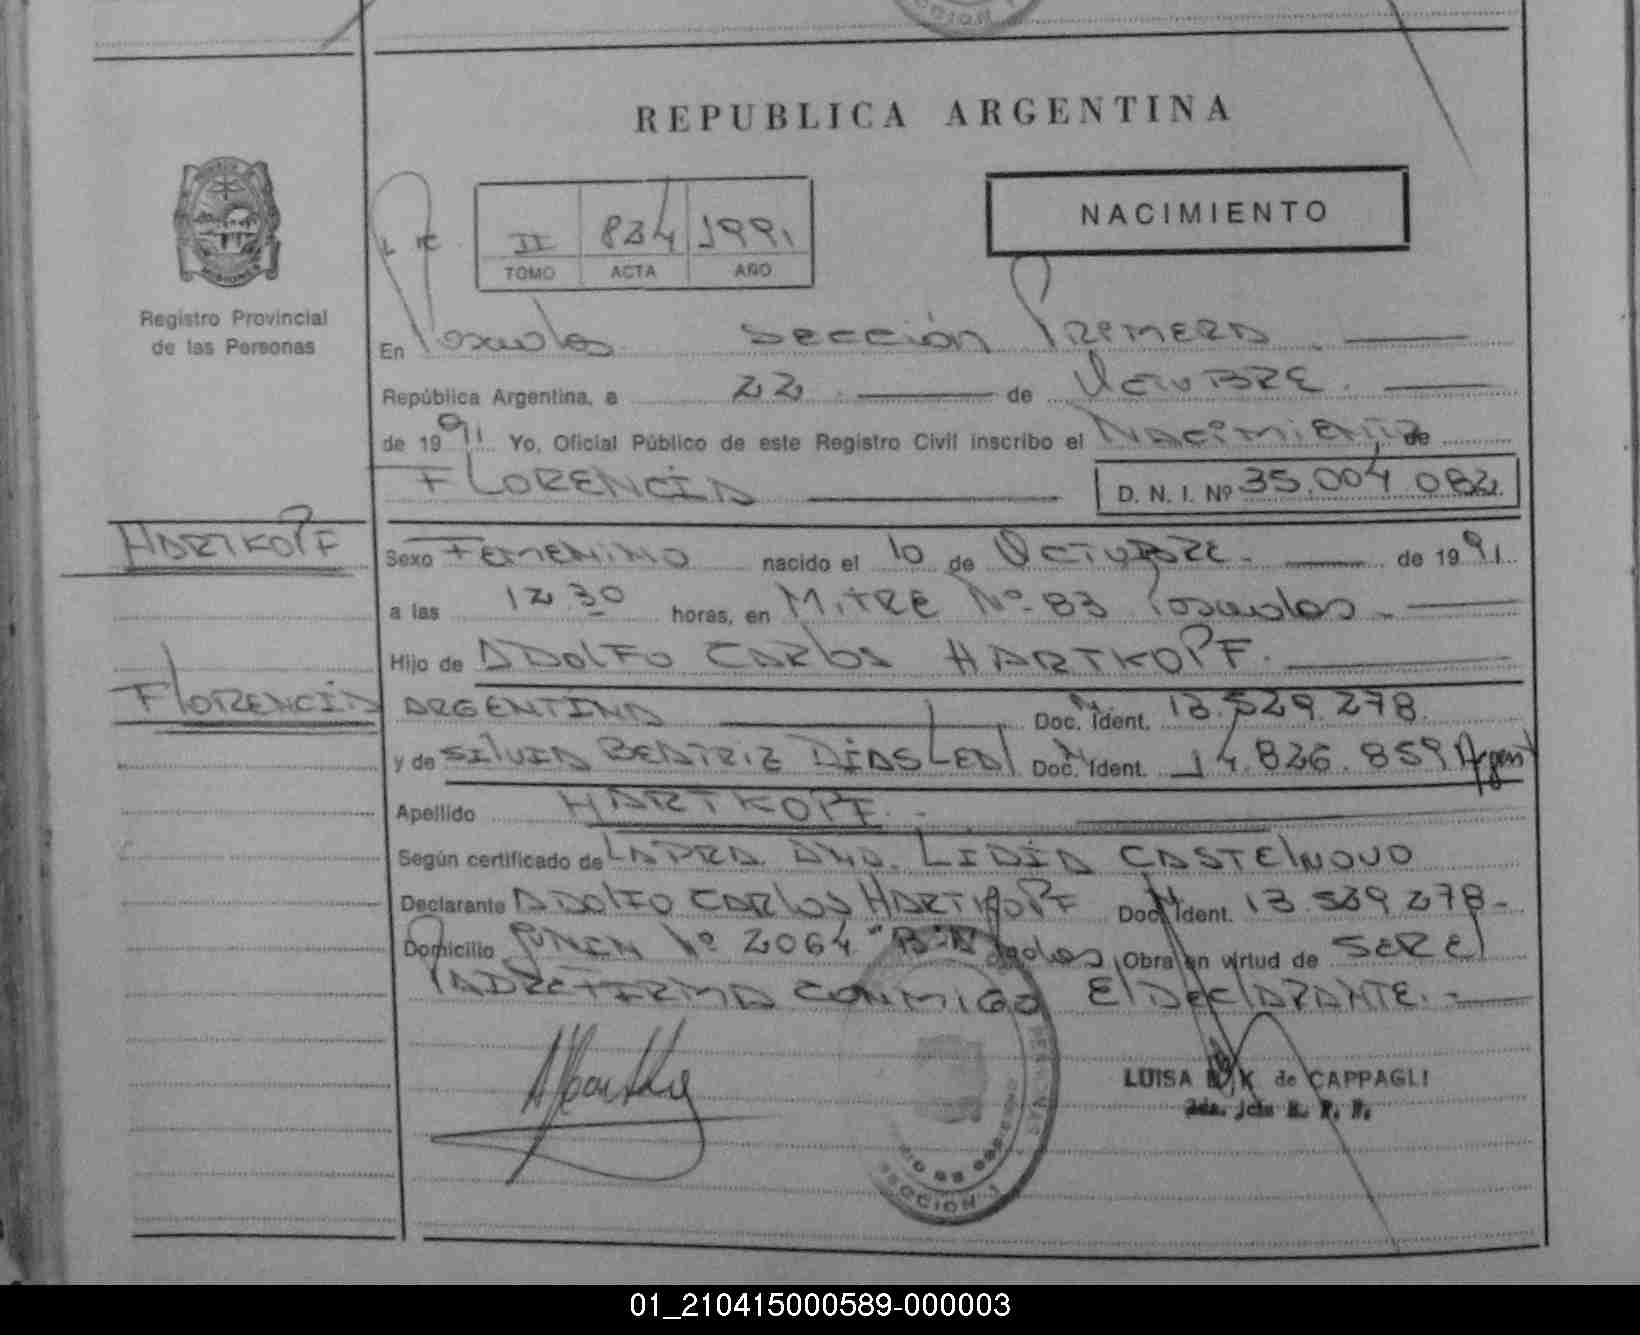 REPUBLICA ARGENTINA
NACIMIENTO
II 834 1991
TOMO ACTA AÑO
Registro Provincial
de las Personas
En Posadas Sección Primera
República Argentina, a 22 de Octubre
de 1991 Yo, Oficial Público de este Registro Civil inscribo el Nacimiento de
FLORENCIA D. N. I. Nº 35.004.082
HARTKOPF
Sexo Femenino nacido el 10 de Octubre de 1991
a las 12 30 horas, en Mitre Nº 83 Posadas
Hijo de ADOLFO CARLOS HARTKOPF
FLORENCIA
ARGENTINA Doc. Ident. 13.529.278
y de SILVIA BEATRIZ DIAS LEAL Doc. Ident. 14.826.859 Argent
Apellido HARTKOPF
Según certificado de LA DRA. ANA LIDIA CASTELNOVO
Declarante ADOLFO CARLOS HARTKOPF Doc. Ident. 13.529.278
Domicilio JUNIN Nº 2064 "B" Obra en virtud de SER EL
PADRE FIRMA CONMIGO EL DECLARANTE.
LUISA K de CAPPAGLI
SECCION 1
01_210415000589-000003